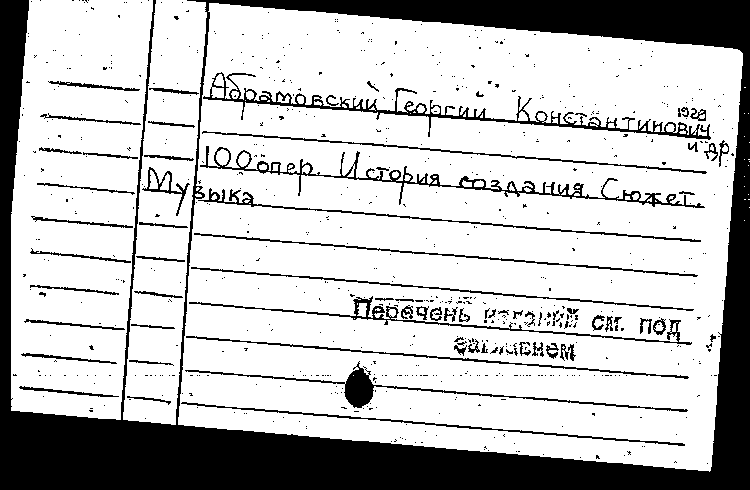 Абрамовский, Георгий Константинович
1929
и др.
100 опер. История создания. Сюжет.
Музыка
Перечень изданий см. под
заглавием